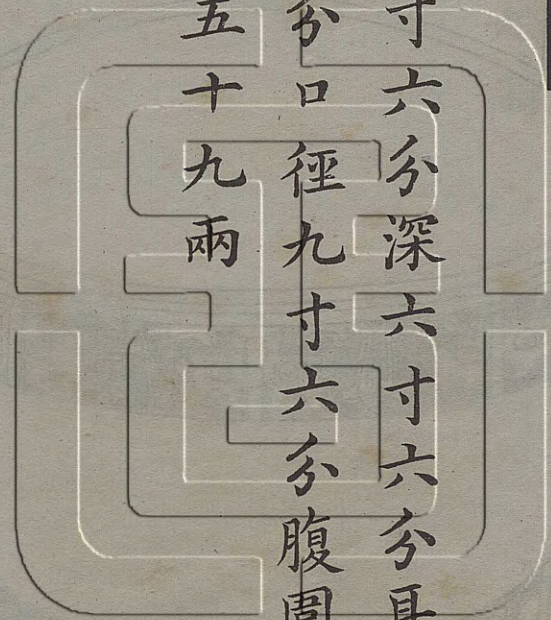 寸六分深六寸六分耳
分口徑九寸六分腹圍
五十九兩